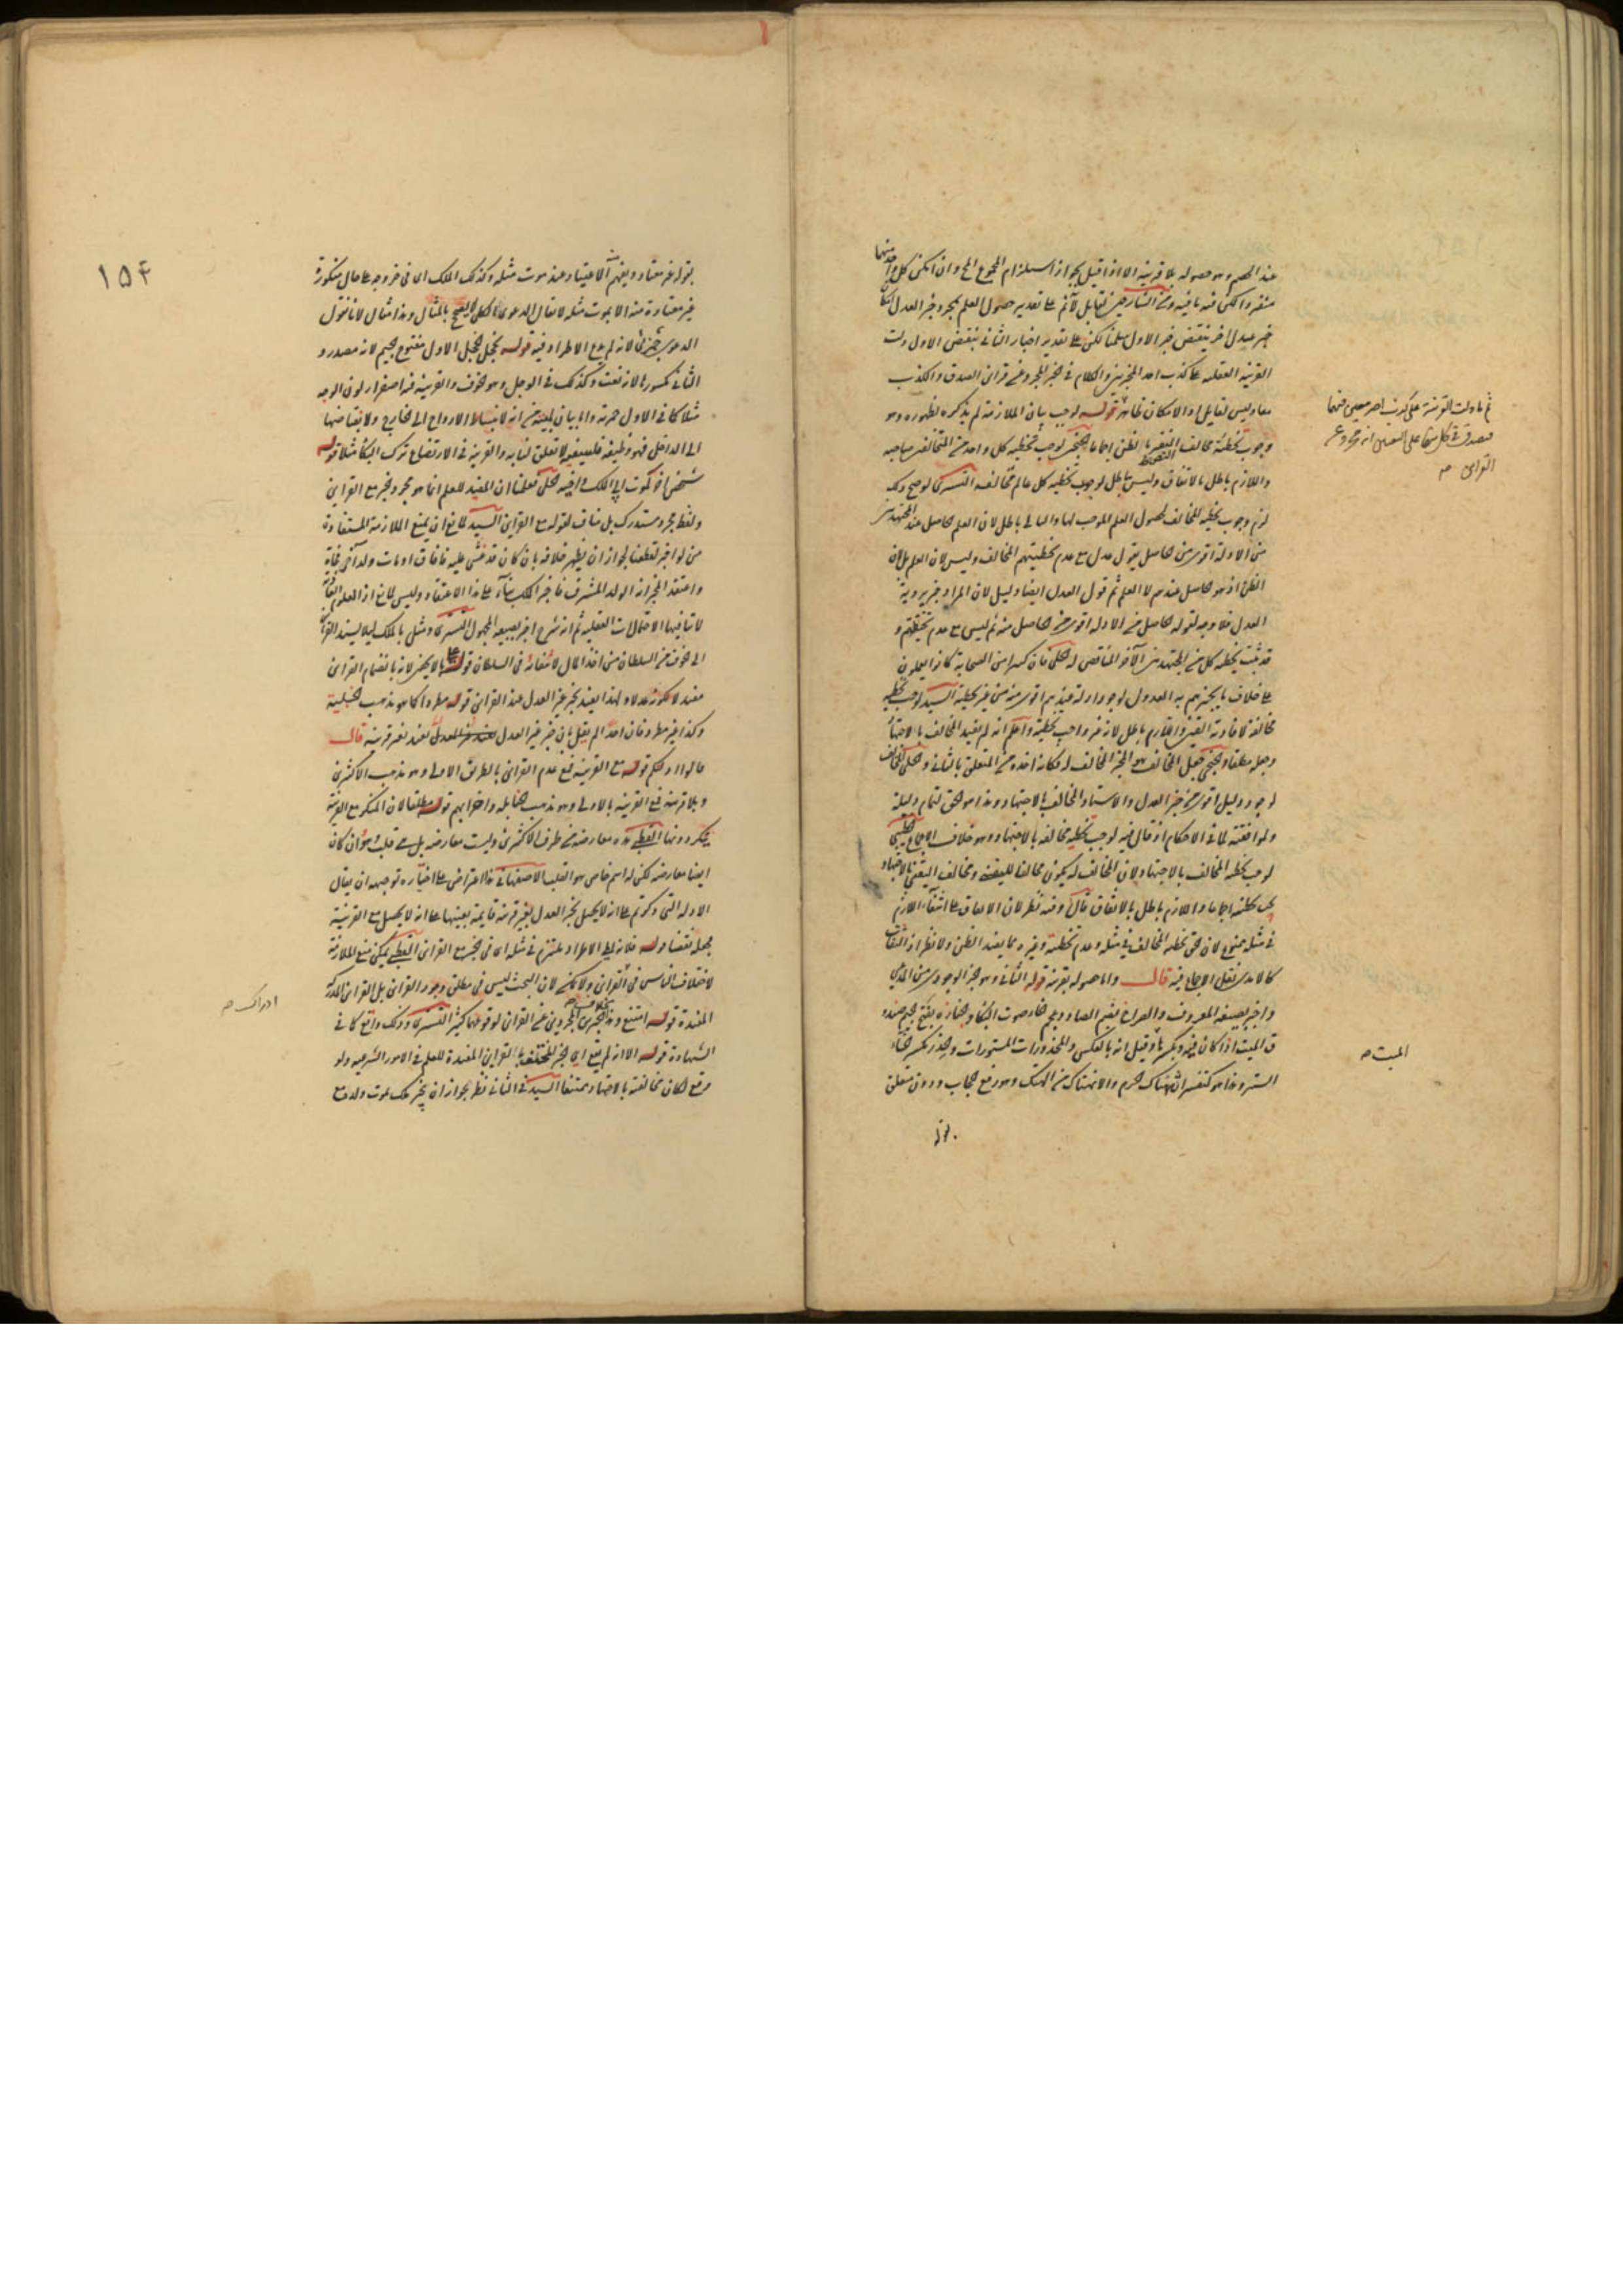 عند الخصم وهو حصوله بلا قرينة الا اذا قيل بجواز استلزام المجموع المح وان امكن كل واحد منهما
منفردا لكن فيه ما فيه ومن الشارحين لقايل لانم على تقدير حصول العلم بمجرد خبر العدل امكان
خبر عدل اخر بنقيض خبر الاول سلمنا لكن على تقدير اخبار الثاني بنقيض الاول دلت
القرينة العقلية على كذب احد المخبرين والكلام في الخبر المجرد عن قراين الصدق والكذب
معا وليس لقايل اذ الامكان ظاهر قوله لوجب بيان الملازمة لم يذكره لظهوره وهو
وجوب تخطئة مخالف اليقين لا الظن اجماعا الخنجي لوجب تخطية كل واحد من المتخالفين صاحبه
واللازم باطل بالاتفاق وليس باطل لوجوب تخطية كل عالم مخالفه التستري لو صح ذلك
لزم وجوب تخطية المخالف لحصول العلم الموجب لها والتالي باطل لان العلم حاصل عند المجتهدين
من الادلة اقوى من حاصل بقول عدل مع عدم تخطيتهم المخالف وليس لان العلم بل لان
الظن اذ هو حاصل عندهم لا العلم ثم قول العدل ايضا دليل لان المراد خبر يرويه
العدل فلا وجه لقوله حاصل من الادلة اقوى من حاصل منه ثم ليس مع عدم تخطيتهم و
قد ثبت تخطية كل من المجتهدين الآخر المناقض له الحلي فان كثيرا من الصحابة كانوا يعملون
على خلاف ما يخبرهم به العدول لوجود ادلة عندهم اقوى منه من غير تخطية السيد لوجب تخطية
مخالفه لافادته اليقين واللازم باطل لانه غير واجب تخطيته واعلم انه لم يقيد المخالف بالاجتهاد
وجعله مطلقا والخنجي جعل المخالف هو الخبر المخالف له فكانه اخذه من المتعلق بالثاني والحلي المخالف
لوجود دليل اقوى من خبر العدل والاستاذ المخالف بالاجتهاد وهذا هو الحق لتمام دليله
ولموافقته لما في الاحكام اذ قال فيه لوجب تخطية مخالفه بالاجتهاد وهو خلاف الاجماع الخطيبي
لوجب تخطية المخالف بالاجتهاد لان المخالف له يكون مخالفا لليقين ومخالف اليقين بالاجتهاد
يجب تخطيته اجماعا واللازم باطل بالاتفاق قال وفيه نظر لان الاتفاق على انتفاء اللازم
في مثله ممنوع لان حق تخطية المخالف في مثله وعدم تخطيته وغيره مما يفيد الظن ولا نظر اذ الثقات
كالامدي نقل الاجماع فيه قال واما حصوله بقرينة قوله الثاني وهو خبر الوجودي من المدعي
واخبر بصيغة المعروف والصراخ بضم الصاد وعجم خاء صوت البكاء والجنازة بفتح الجيم عنده
ق الميت اذا كان فيه وبكسرها وقيل انه بالعكس والمخدورات المستورات والخدر بكسر الخاء
الستر وهذا هو كتفسير انهتاك حرم والانهتاك من الهتك وهو رفع الحجاب ودون متعلق
بقوله
ثم ما دلت القرينة على كذب احد معين منهما
فصدق في كل منهما على التعيين انه مجرد عن
القراين صح
الميت صح
١٥٤
بقوله غير معتاد ويفهم الاعتياد عند موت مثله وكذلك الملك اي في خروجه على حال منكورة
غير معتادة منه الا بموت مثله لا يقال الدعوى الكلي لا يصح بالمثال وهذا مثال لانا نقول
الدعوى جزئي لانه لم يدع الاطراد فيه قوله كخجل الخجل الاول مفتوح الجيم لانه مصدر و
الثاني مكسورها لانه نعت وكذلك في الوجل وهو الخوف والقرينة فيه اصفرار لون الوجه
مثلا كما في الاول حمرته
شخص اخر كموت ابي الملك واخيه الحلي فعلمنا ان المفيد للعلم انما هو مجرد خبر مع القراين
ولفظ مجرد مستدرك بل مناف لقوله مع القراين السيد لمانع ان يمنع الملازمة المستفادة
من لو اخبر لقطعنا لجواز ان يظهر خلافه بان كان قد غشي عليه فافاق او مات ولد آخر فجاة
واعتقد المخبر انه الولد المشرف فاخبر الملك بناء على هذا الاعتقاد وليس لمانع اذ العلوم العادية
لا تنافيها الاحتمالات العقلية ثم انه شرح اخبر بصيغة المجهول التستري ومثل بالملك ليلا يسند القراين
الى خوف من السلطان من اخذ المال لانتفائه في السلطان قوله بالخبر لانه بانضمام القراين
مفيد لا لكونه عدلا ولهذا يفيد بخبر غير العدل عند القراين قوله مطردا كما هو مذهب الحنبلية
وكذا غير مطرد فان احدا لم يقل بان خبر غير العدل يفيد بغير قرينة قال
قالوا ادلتكم قوله مع القرينة فمع عدم القراين بالطريق الاولى وهو مذهب الاكثرين
وبلا قرينة فمع القرينة بالاولى وهو مذهب الحنابلة واحزابهم قوله مطلقا لان المنكر مع القرينة
ينكر دونها القطبي هذه معارضة من طرف الاكثرين وليست معارضة بل هي قلب هو وان كان
ايضا معارضة لكن له اسم خاص هو القلب الاصفهاني هذا اعتراض على اختياره توجيهه ان يقال
الادلة التي ذكرتم على انه لا يحصل بخبر العدل بغير قرينة قايمة بعينها على انه لا يحصل مع القرينة
بجعله نقضا قوله فلانه لم يطرد الاطراد ملتزم في مثله اي في خبر مع القراين القطبي يمكن منع الملازمة
لاختلاف الناس في القراين ولا يمكن لان البحث ليس في مطلق وجود القراين بل القراين المدركة
المفيدة قوله امتنع وهذا بخلاف الخبرين المجردين عن القراين لوقوعهما كثيرا التستري وذلك واقع كما في
الشهادة قوله الا انه لم يقع اي خبر المختلف بالقراين المفيدة للعلم في الامور الشرعية ولو
وقع لكان مخالفته بالاجتهاد ممتنعا السيد في الثاني نظر بجواز ان يخبر ملك بموت ولد مع
ادراك صح